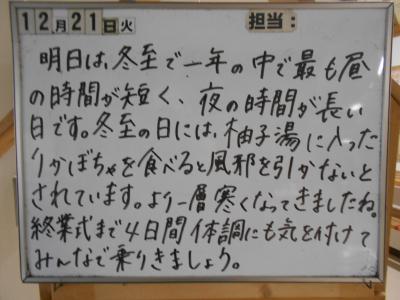 12月21日火 担当:
明日は、冬至で一年の中で最も昼
の時間が短く、夜の時間が長い
日です。冬至の日には、柚子湯に入った
りかぼちゃを食べると風邪を引かないと
されています。より一層寒くなってきましたね。
終業式まで4日間体調にも気を付けて
みんなで乗りきましょう。